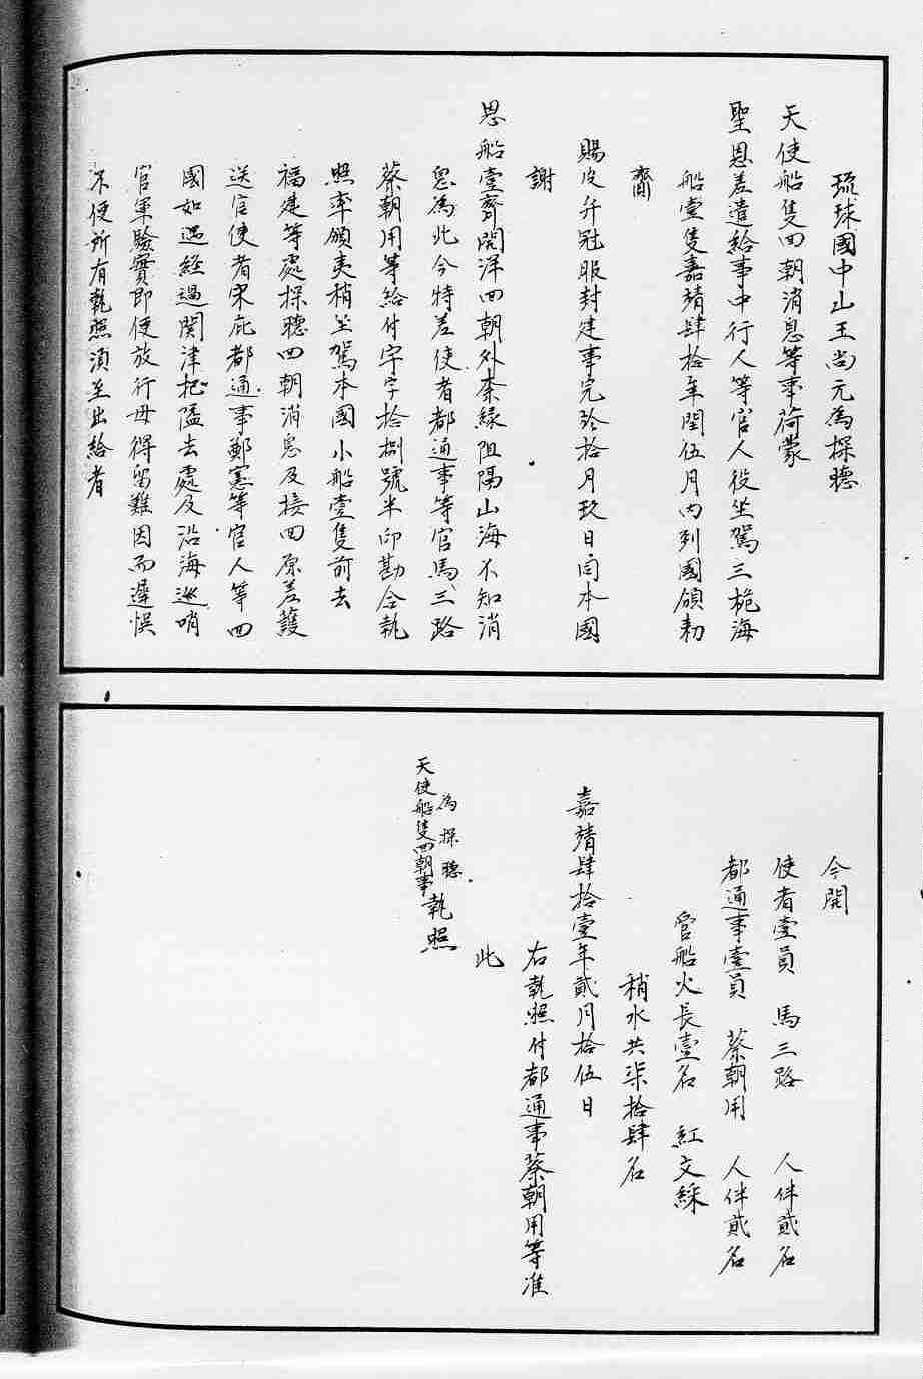 琉球國中山王尚元為探聽
天使船隻回朝消息等事荷蒙
聖恩差遣給事中行人等官人役坐駕三桅海
船壹隻嘉靖肆拾年閏伍月內到國領勅
齎
賜皮弁冠服封建事完於拾月玖日同本國
謝
恩船壹齊開洋回朝外柰緣阻隔山海不知消
息為此今特差使者都通事等官馬三路
蔡朝用等給付字字拾捌號半印勘合執
照率領夷稍坐駕本國小船壹隻前去
福建等處探聽回朝消息及接回原差護
送官使者宋庇都通事鄭憲等官人等回
國如遇經過関津把隘去處及沿海巡哨
官軍驗實即便放行毋得留難因而遲悞
不便所有執照須至出給者
今開
使者壹員　馬三路　人伴貳名
都通事壹員　蔡朝用　人伴貳名
管船火長壹名　紅文綵
稍水共柒拾肆名
嘉靖肆拾壹年貳月拾伍日
右執照付都通事蔡朝用等准
此
為探聽
天使船隻回朝事執照